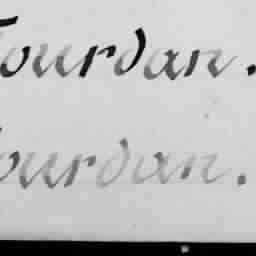 Jourdan.
Jourdan.